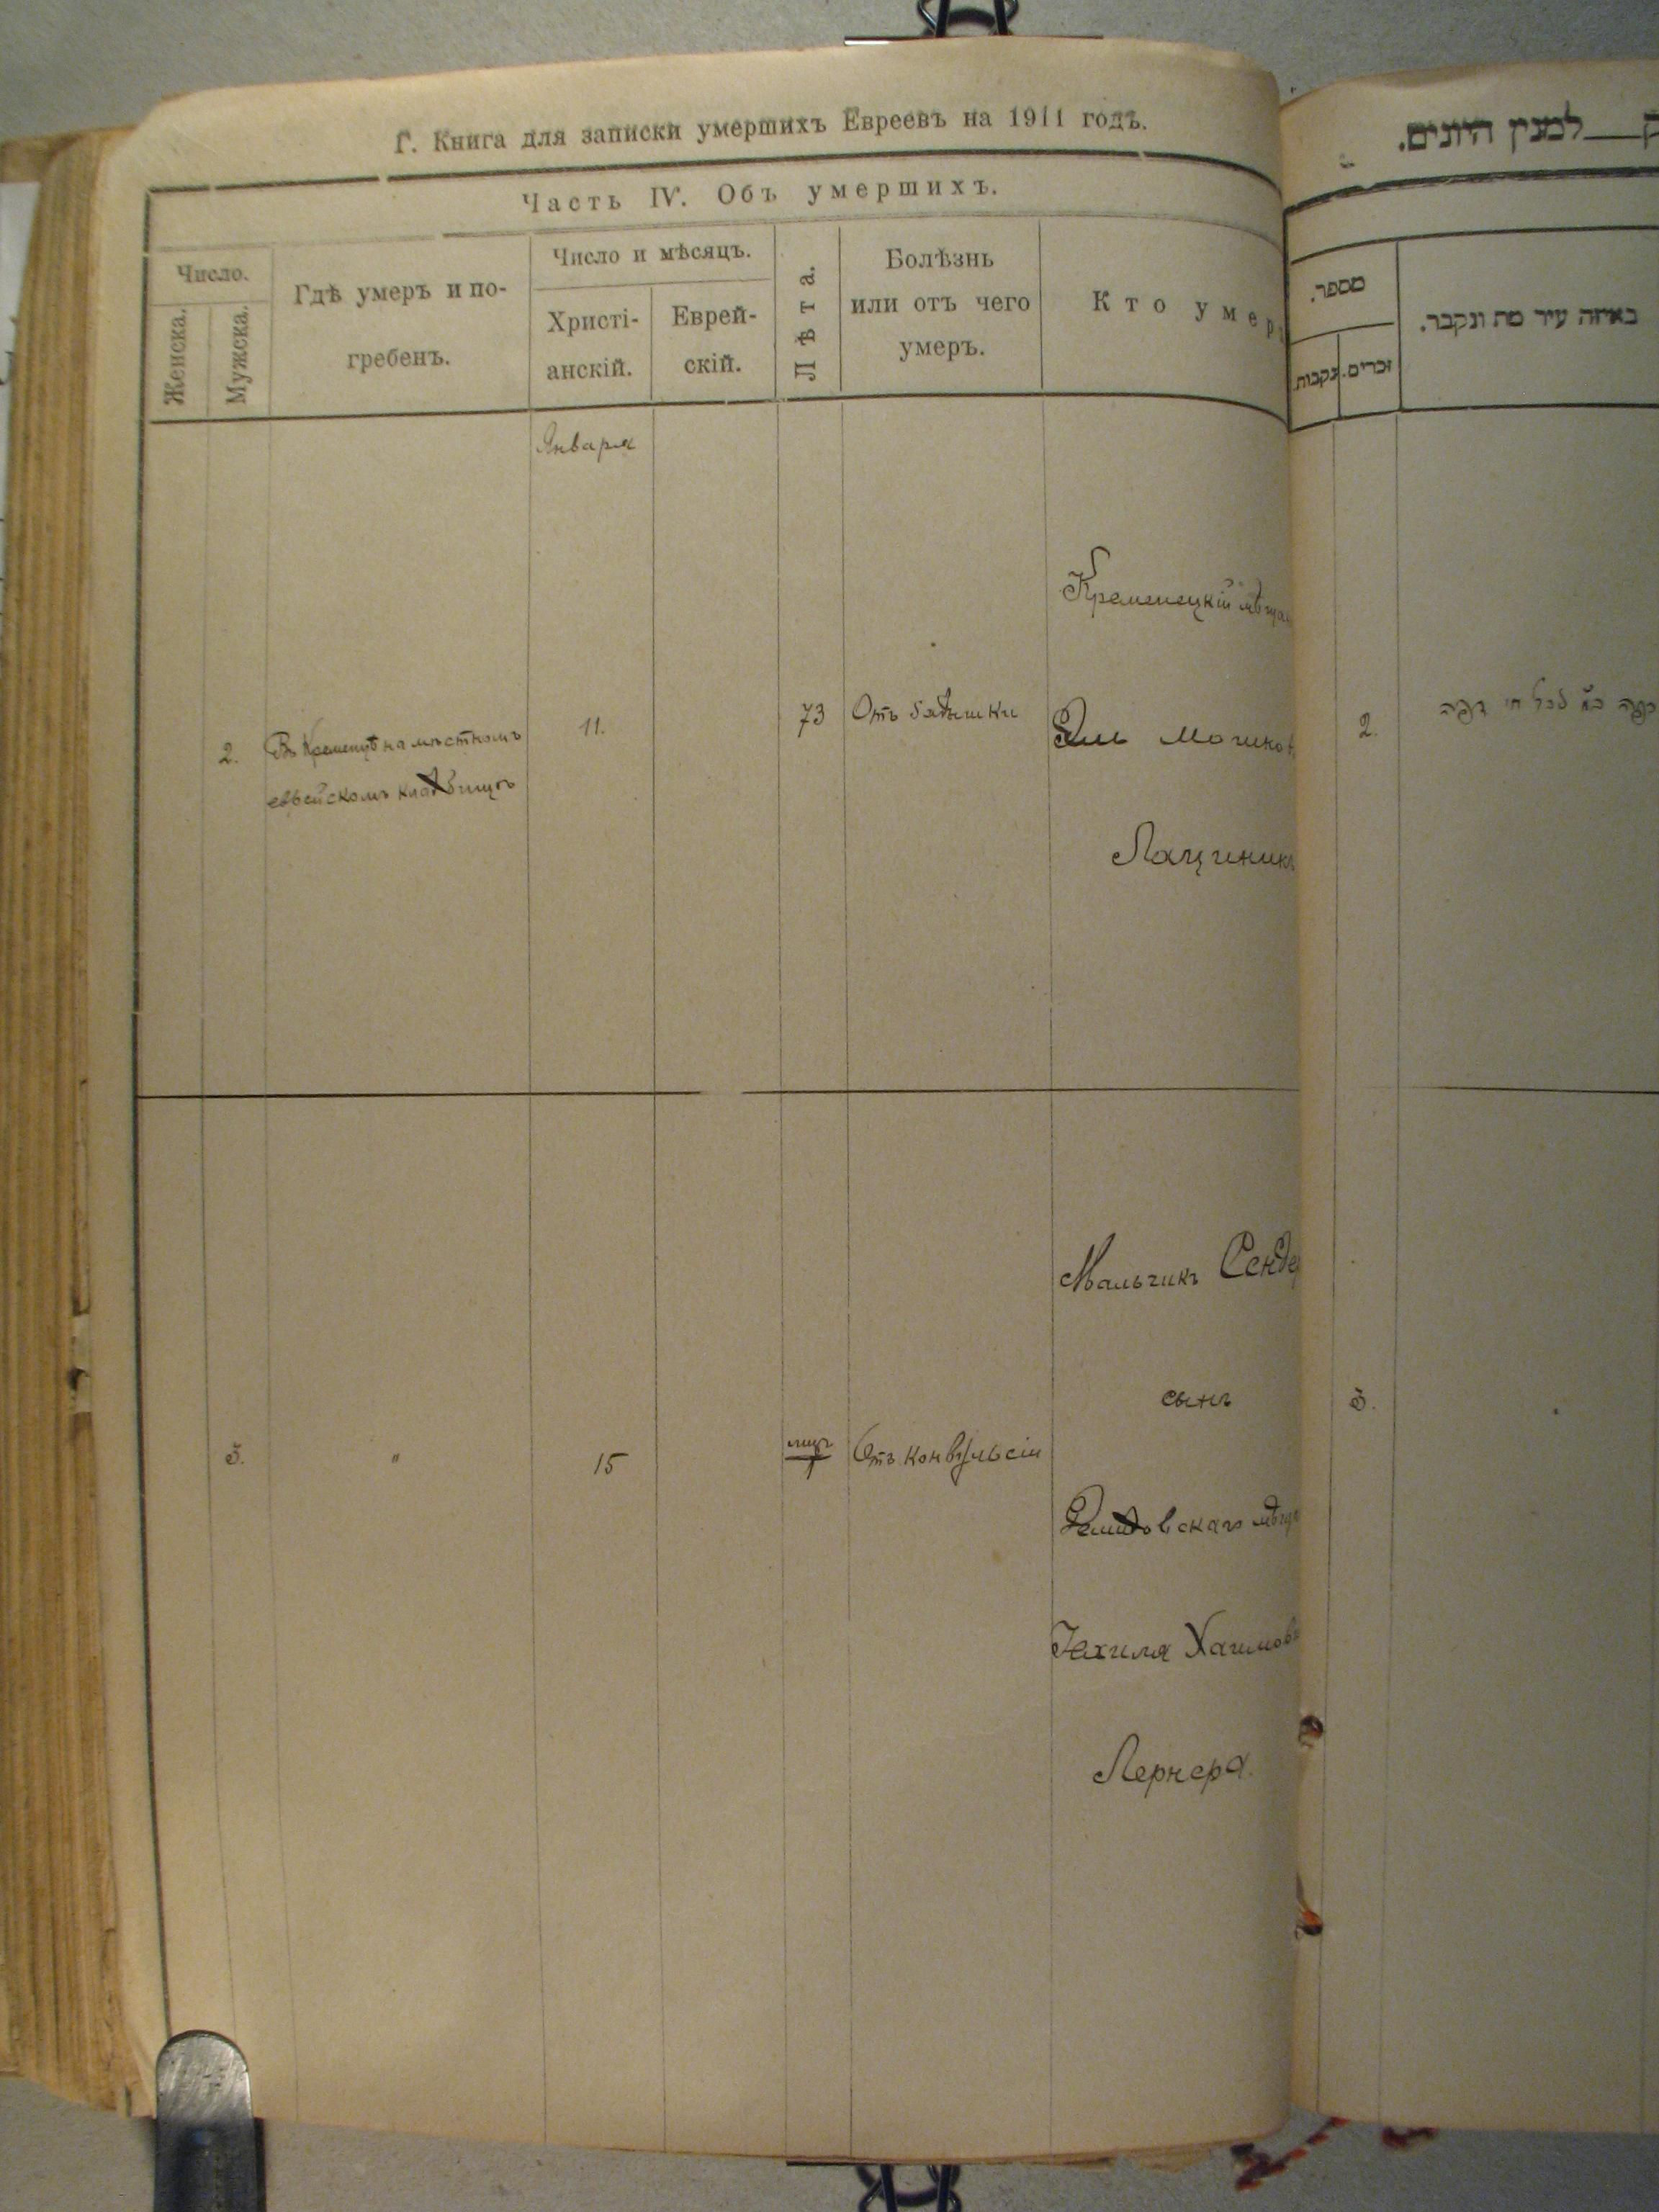 Г. Книга для записки умершихъ Евреевъ на 1911 годъ.
Часть IV. Объ умершихъ.
Число.
Женска.
Мужска.
Гдѣ умеръ и по-
гребенъ.
Число и мѣсяцъ.
Христі-
анскій.
Еврей-
скій.
Лѣта.
Болѣзнь
или отъ чего
умеръ.
Кто умер
Января
2.
Въ Кременцѣ на местномъ
еврейскомъ кладбищѣ
11.
73
Отъ одышки
Кременецкій мѣщан
Эли
Лацинникъ
3.
"
15
1
Отъ конвульсіи
Мальчикъ Сендер
сынъ
Іехиля Хаимов
Лернера.
למנין היונים.
מספר.
נקבות
זכרים.
באיזה עיר מת ונקבר.
2.
3.